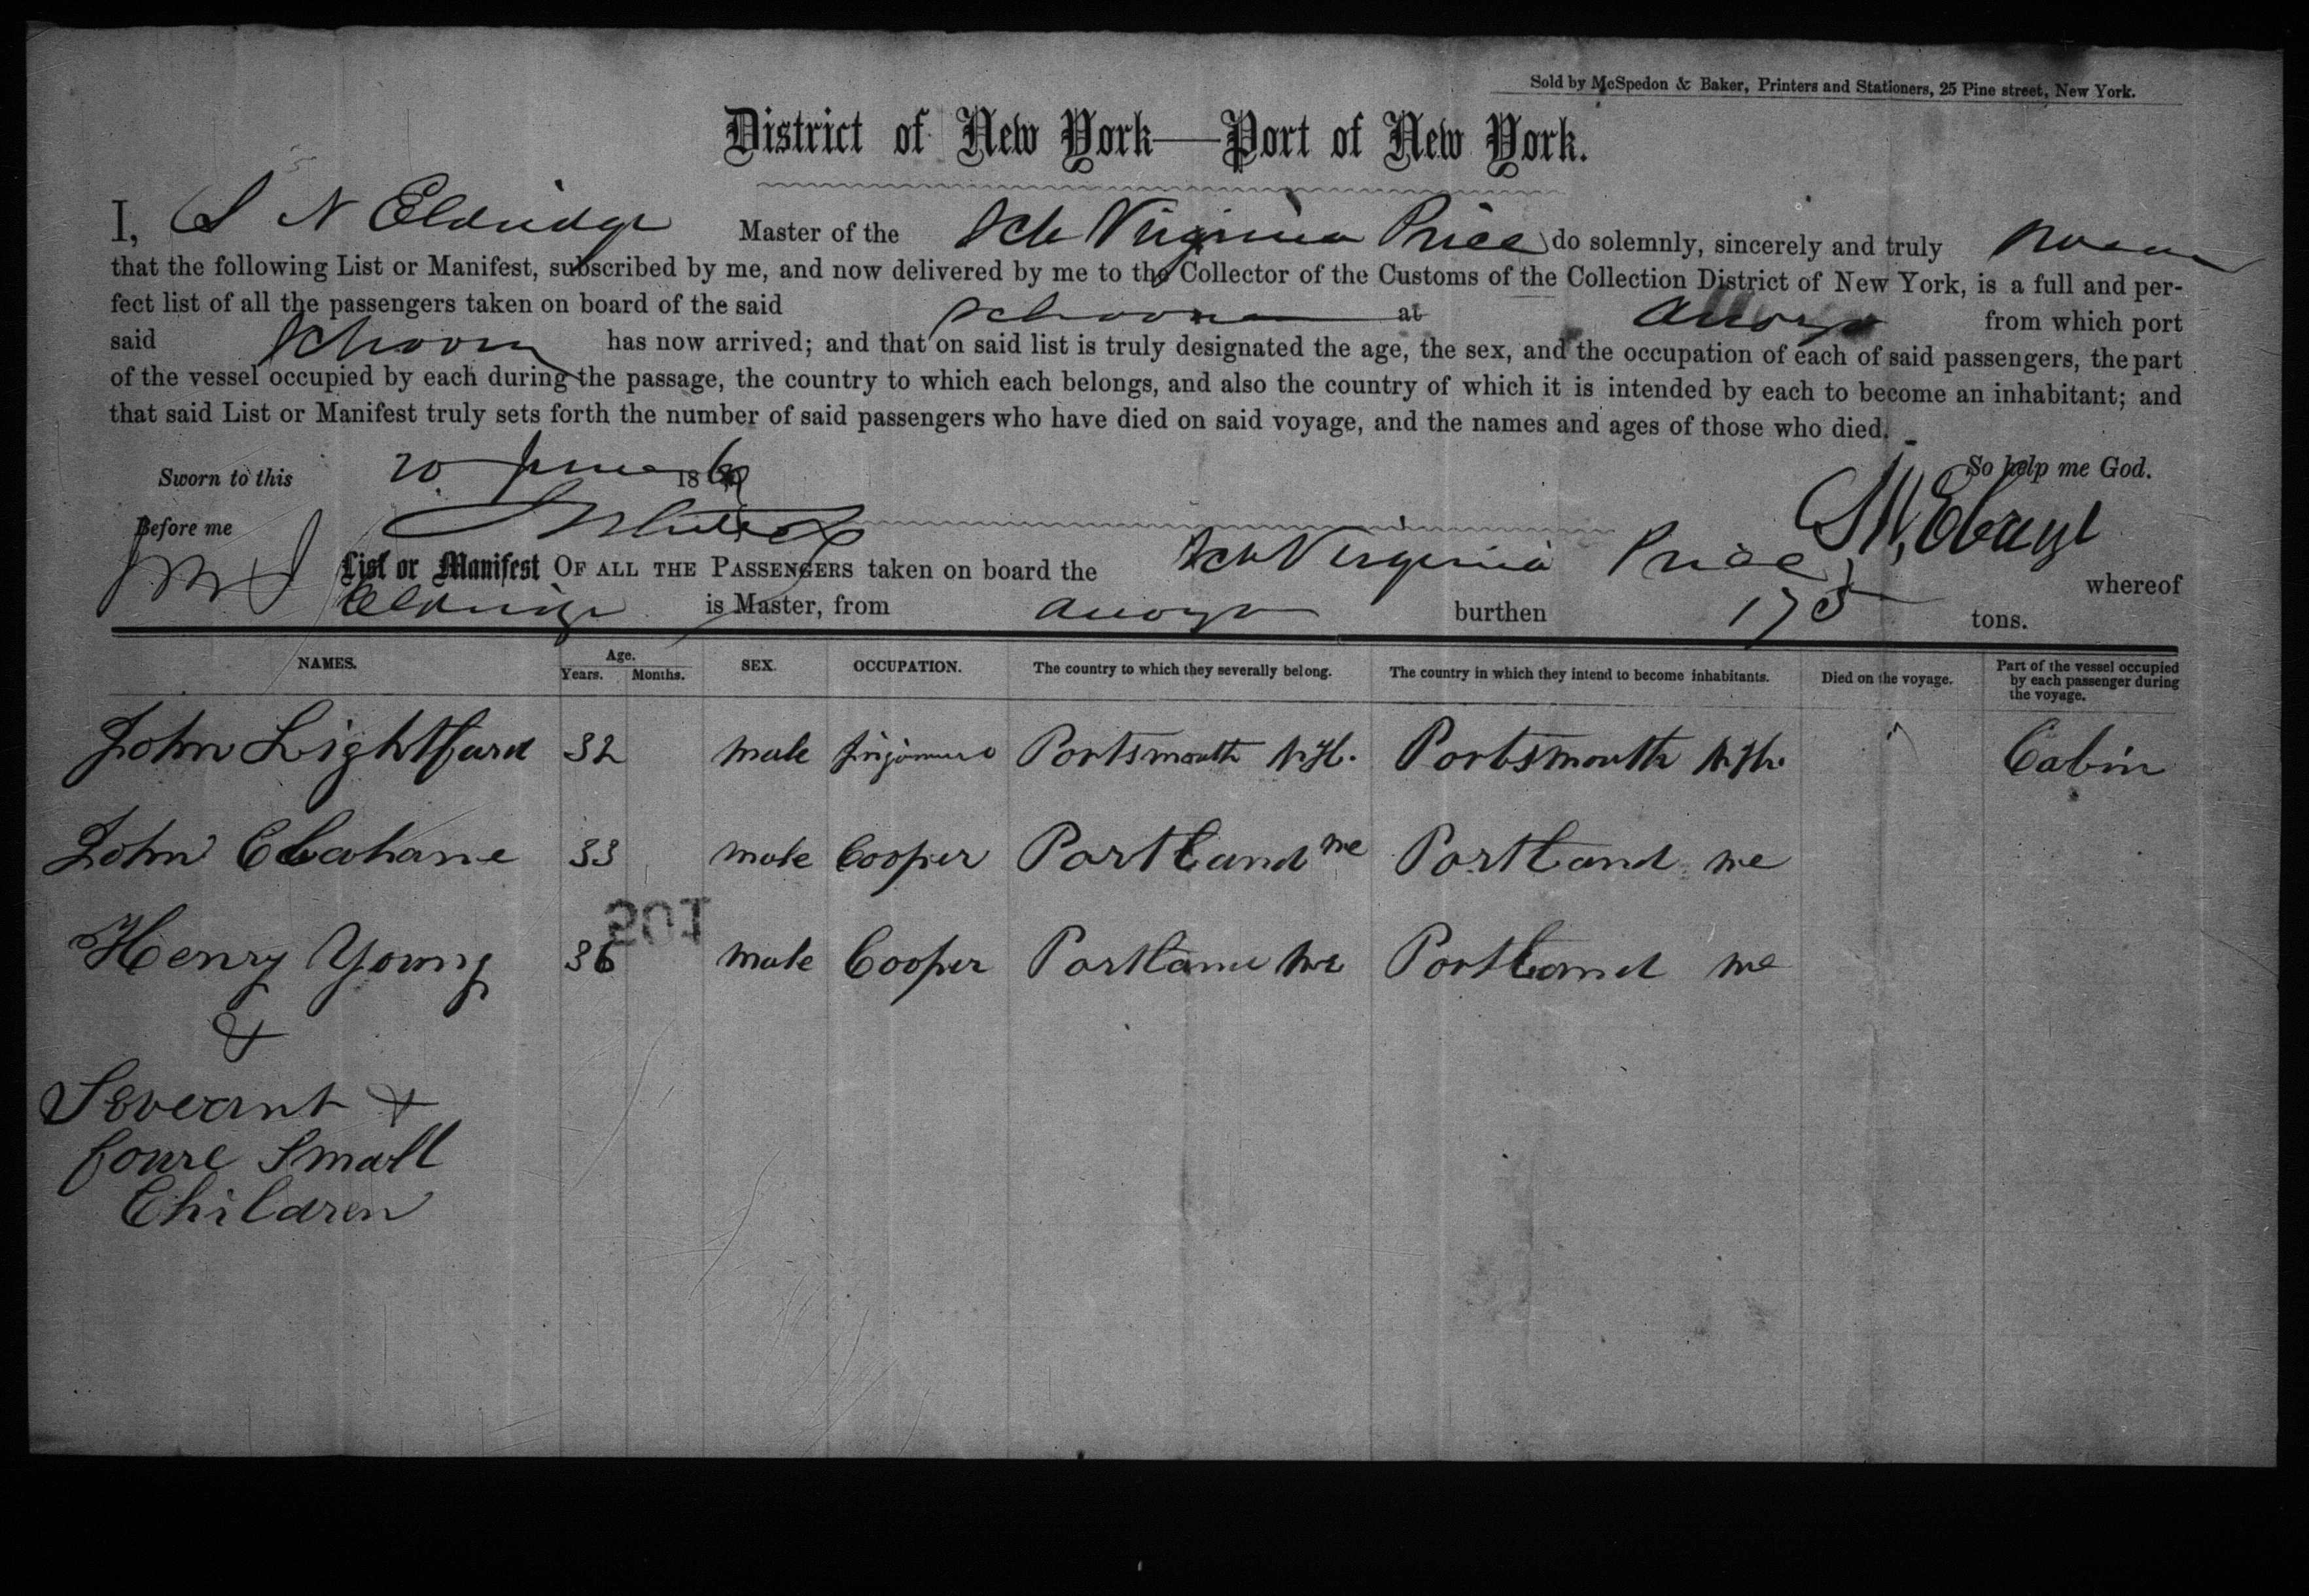 Sold by McSpedon & Baker, Printers and Stationers, 25 Pine street, New York.
District of New York—Port of New York.
I, S N Eldridge Master of the Sch Virginia Price do solemnly, sincerely and truly swear
that the following List or Manifest, subscribed by me, and now delivered by me to the Collector of the Customs of the Collection District of New York, is a full and per-
fect list of all the passengers taken on board of the said schooner at Arroyo from which port
said schooner has now arrived; and that on said list is truly designated the age, the sex, and the occupation of each of said passengers, the part
of the vessel occupied by each during the passage, the country to which each belongs, and also the country of which it is intended by each to become an inhabitant; and
that said List or Manifest truly sets forth the number of said passengers who have died on said voyage, and the names and ages of those who died.
Sworn to this 20 June 18 So help me God.
Before me
List or Manifest OF ALL THE PASSENGERS taken on board the Sch Virginia Price whereof
Eldridge is Master, from Arroyo burthen 175 tons.
NAMES. Age. Years. Months. SEX. OCCUPATION. The country to which they severally belong. The country in which they intend to become inhabitants. Died on the voyage. Part of the vessel occupied by each passenger during the voyage.
John Lightfurd 32 male Portsmouth N.H. Portsmouth N.H. Cabin
John Clahane 33 male Cooper Portland me Portland me
201
Henry Young 36 male Cooper Portland me Portland me
&
Severant &
foure Small
Children